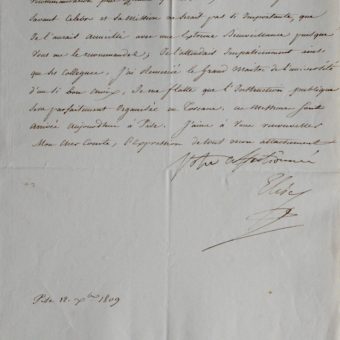 Savant Celebre et sa Mission ne serait pas si Importante, que
Je l'aurait accueilli avec une Extreme Bienveillance puisque
Vous me le recommandés, Je l'attendait Impatiemment ainsi
que ses Collegues, J'ai Remercié le Grand Maitre de l'université
d'un si bon choix, Je me flatte que l'Instruction publique
Sera parfaitement Organisée en Toscane. ces Messieurs sont
Arrivés aujourd'hui à Pise. J'aime à Vous renouveller
Mon cher Comte, l'Expression de tout mon attachement
Votre affectionnée
Elisa
Pise 12. Xbre 1809